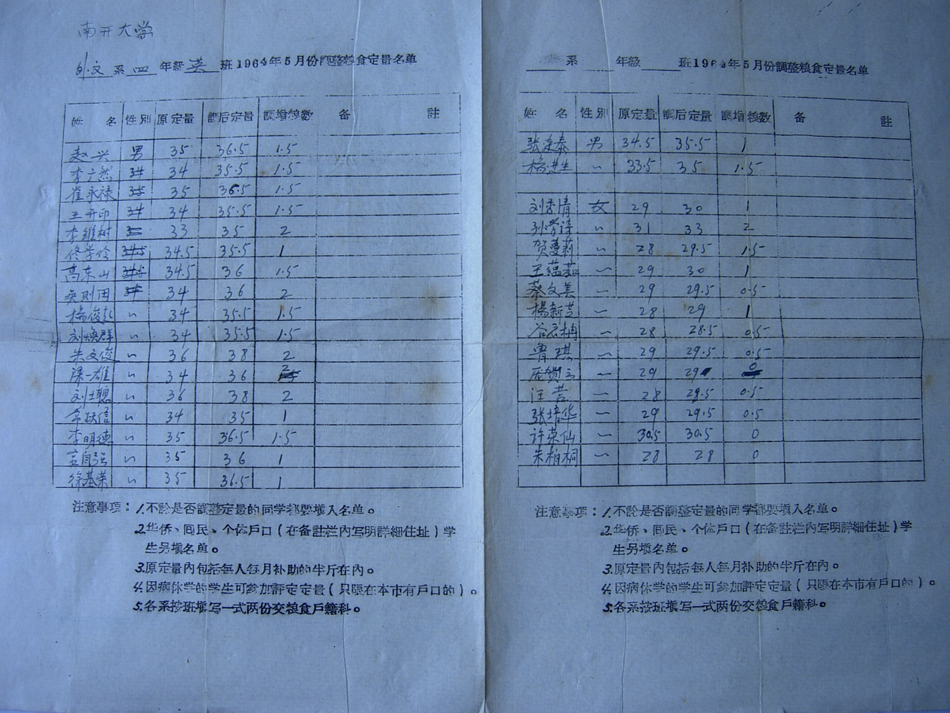 南开大学
外文 系 四 年級 英 班1964年5月份調整粮食定量名单
姓 名 性別 原定量 調后定量 調增粮数 备 註
赵兴 男 35 36.5 1.5
李广然 34 35.5 1.5
崔永禄 35 36.5 1.5
王开印 34 35.5 1.5
李維树 33 35 2
34.5 35.5 1
高东山 34.5 36 1.5
吴则田 34 36 2
楊俊 〃 34 35.5 1.5
刘焕群 〃 34 35.5 1.5
朱文俊 〃 36 38 2
梁一雄 〃 34 36 2
刘士聰 〃 36 38 2
〃 34 35 1
李明德 〃 35 36.5 1.5
孟自强 〃 35 36 1
徐基荣 〃 35 36.5 1
注意事項：1.不論是否調整定量的同学都要填入名单。
2.华侨、囘民、个体戶口（在备註栏内写明詳細住址）学
生另填名单。
3.原定量內包括每人每月补助的半斤在內。
4.因病休学的学生可参加評定定量（只限在本市有戶口的）。
5.各系按班填写一式两份交粮食戶籍科。
系 年級 班1964年5月份調整粮食定量名单
姓 名 性別 原定量 調后定量 調增粮数 备 註
男 34.5 35.5 1
楊 〃 33.5 35 1.5
刘 情 女 29 30 1
孙 〃 31 33 2
贺曼莉 〃 28 29.5 1.5
王蕴茹 〃 29 30 1
蔡文美 〃 29 29.5 0.5
楊新芝 〃 28 29 1
谷 〃 28 28.5 0.5
曹琪 〃 29 29.5 0.5
〃 29 29 0
汪 〃 28 29.5 0.5
张培华 〃 29 29.5 0.5
许荣仙 〃 30.5 30.5 0
朱柏桐 〃 28 28 0
注意事項：1.不論是否調整定量的同学都要填入名单。
2.华侨、囘民、个体戶口（在备註栏内写明詳細住址）学
生另填名单。
3.原定量內包括每人每月补助的半斤在內。
4.因病休学的学生可参加評定定量（只限在本市有戶口的）。
5.各系按班填写一式两份交粮食戶籍科。